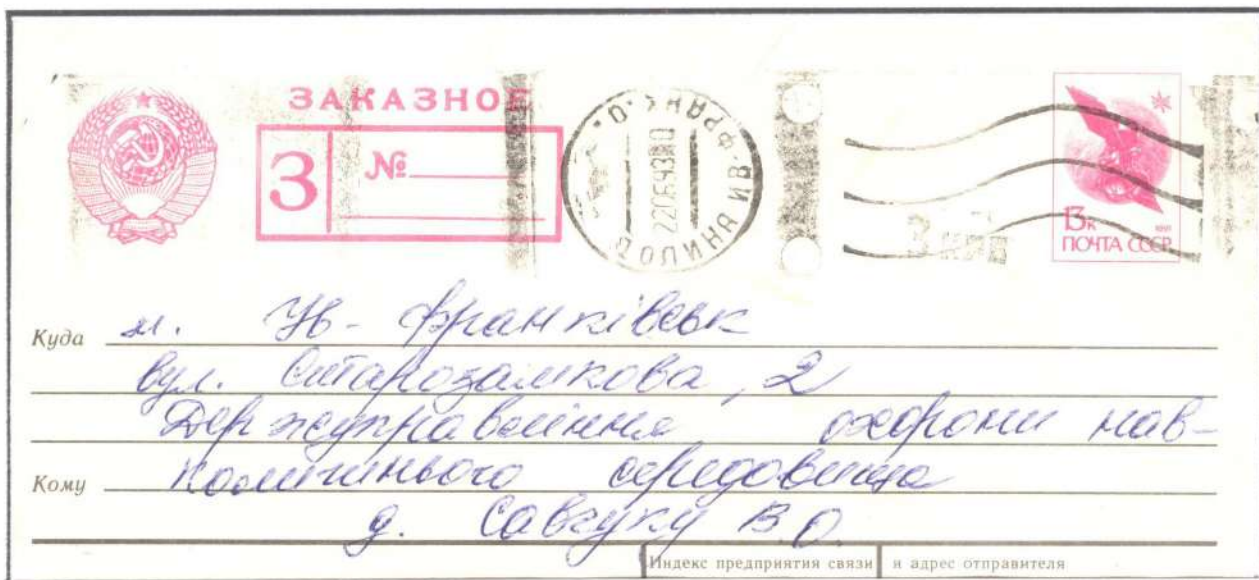 ЗАКАЗНОЕ
З №
ДОЛИНА ИВ.ФРАНК.О.
220693
13к 1991
ПОЧТА СССР
Куда м. Ів-Франківськ
вул. Старозамкова, 2
Держуправління охорони нав-
Кому колишнього середовища
д. Савчуку В.О.
Индекс предприятия связи и адрес отправителя